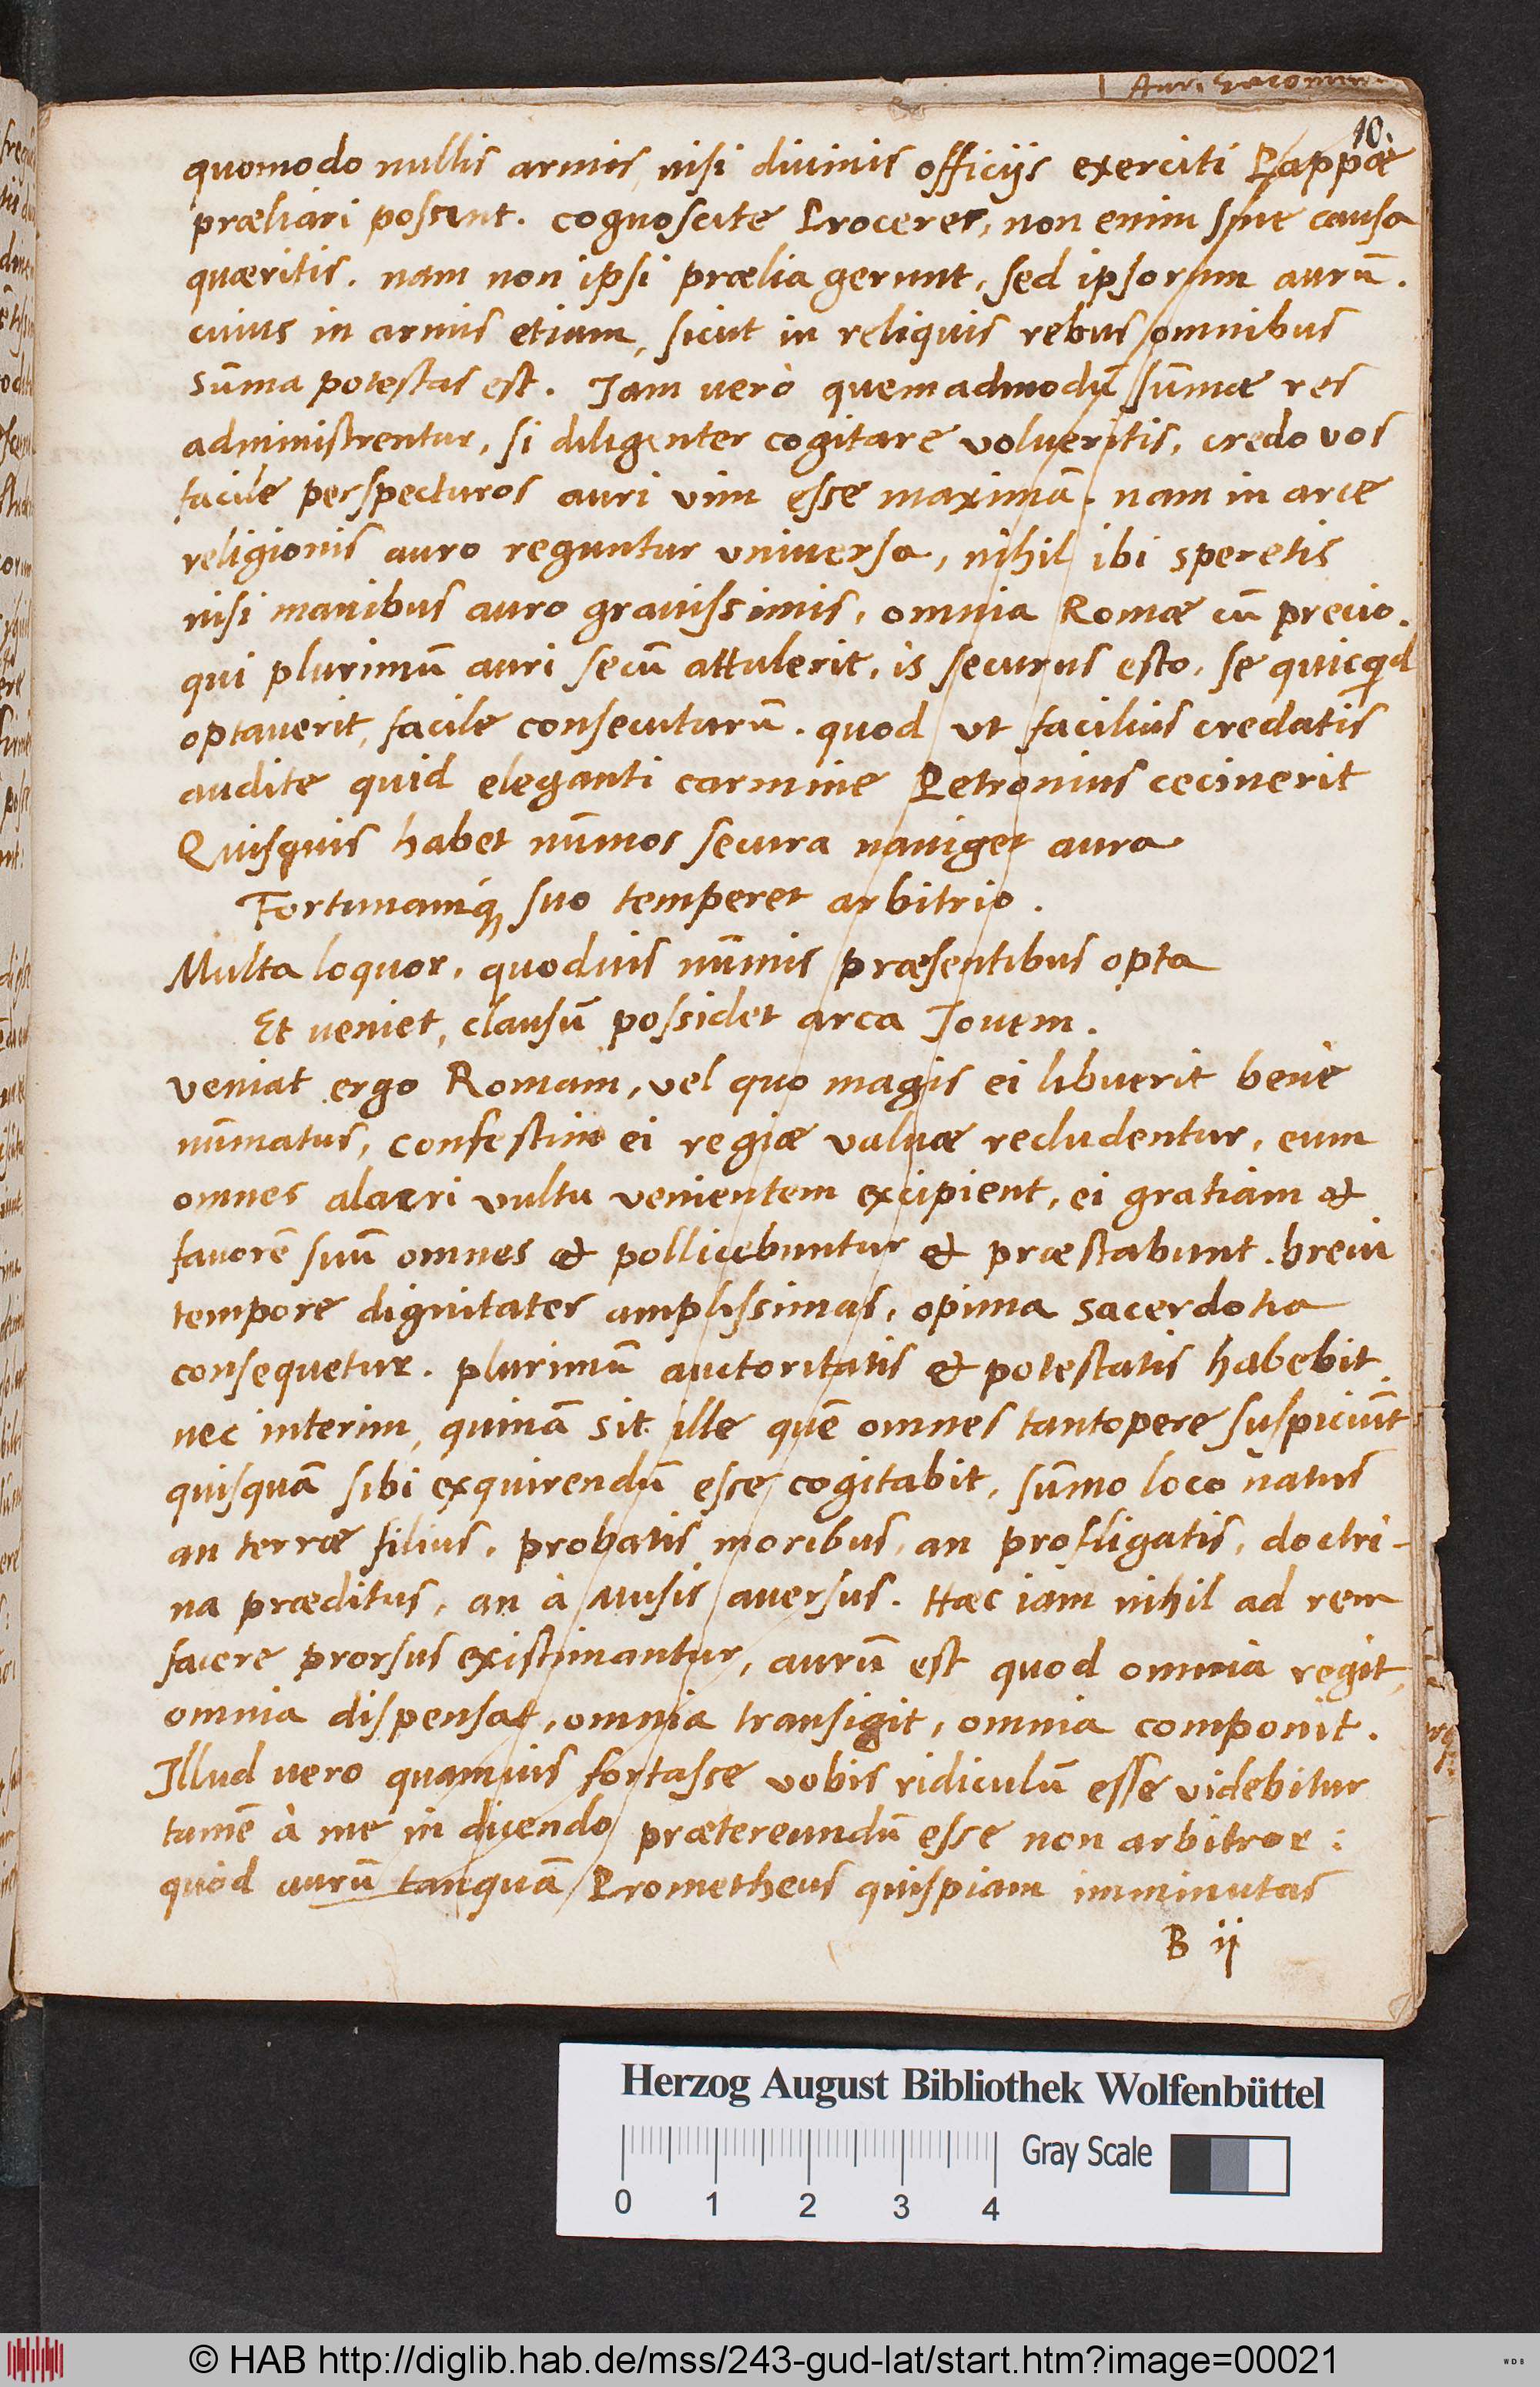 10.
quomodo nullis armis, nisi diuinis officijs exerciti Pappæ
præliari possint. cognoscite Proceres, non enim sine causa
quæritis. nam non ipsi prælia gerunt, sed ipsorum aurū.
cuius in armis etiam, sicut in reliquis rebus omnibus
sūma potestas est. Jam uerò quemadmodū sūmæ res
administrentur, si diligenter cogitare volueritis, credo vos
facile perspecturos auri vim esse maximā. nam in arce
religionis auro reguntur vniuersa, nihil ibi speretis
nisi manibus auro grauissimis, omnia Romæ cū precio.
qui plurimū auri secū attulerit, is securus esto, se quicqd
optauerit, facile consecuturū. quod ut facilius credatis
audite quid eleganti carmine Petronius cecinerit
Quisquis habet nūmos secura nauiget aura
Fortunamq́; suo temperet arbitrio.
Multa loquor, quoduis nūmis præsentibus opta
Et ueniet, clausū possidet arca Jouem.
veniat ergo Romam, vel quo magis ei libuerit benè
nūmatus, confestim ei regiæ valuæ recludentur, eum
omnes alacri vultu venientem excipient, ei gratiam &
fauorē suū omnes & pollicebuntur & præstabunt. breui
tempore dignitates amplissimas, opima sacerdotia
consequetur. plurimū auctoritatis & potestatis habebit.
nec interim, quinā sit ille quē omnes tantopere suspiciūt
quisquā sibi exquirendū esse cogitabit, sūmo loco natus
an terræ filius, probatis moribus, an profligatis, doctri-
na præditus, an à Musis auersus. Hæc iam nihil ad rem
facere prorsus existimantur, aurū est quod omnia regit,
omnia dispensat, omnia transigit, omnia componit.
Illud uero quamuis fortasse vobis ridiculū esse videbitur
tamē à me in dicendo prætereundū esse non arbitror:
quòd aurū tanquā Prometheus quispiam imminutas
B ij
Herzog August Bibliothek Wolfenbüttel
Gray Scale
0 1 2 3 4
© HAB http://diglib.hab.de/mss/243-gud-lat/start.htm?image=00021
WDB